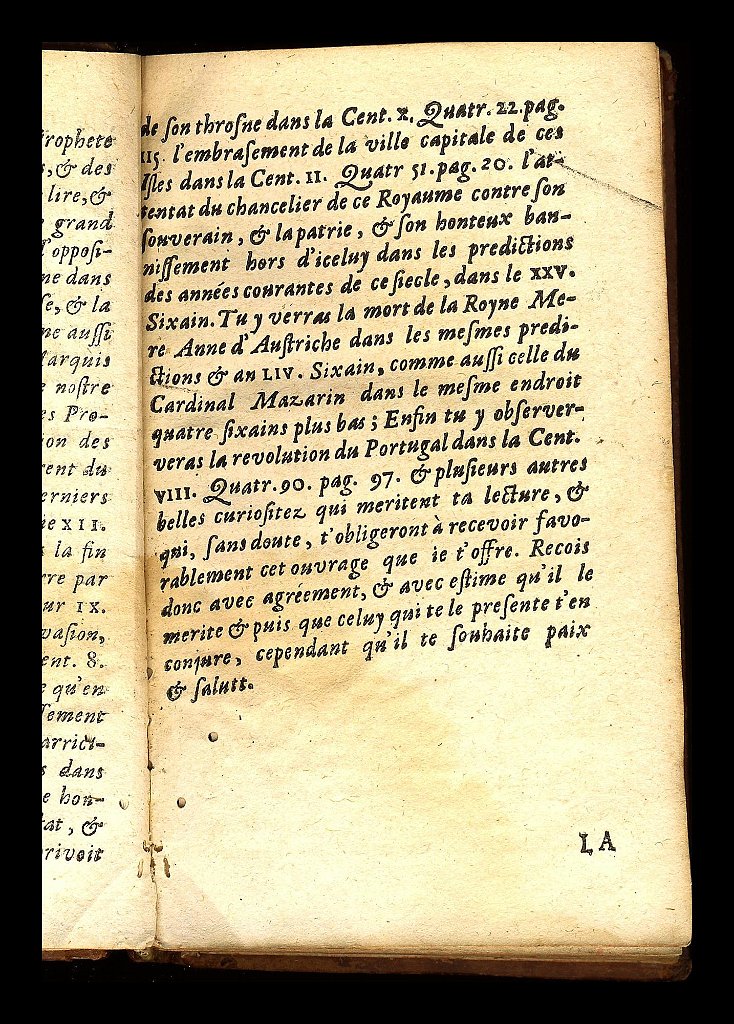 rophete
s, & des
lire, &
grand
l'opposi-
ne dans
se, & la
ne aussi
Marquis
e nostre
es Pro-
ion des
rent du
erniers
ie XII.
la fin
rre par
ur IX.
vasion,
ent. 8.
e qu'en
sement
arrici-
s dans
e hon-
tat, &
rivoit
de son throsne dans la Cent. X. Quatr. 22. pag.
115. l'embrasement de la ville capitale de ces
Isles dans la Cent. II. Quatr 51. pag. 20. l'at-
tentat du chancelier de ce Royaume contre son
souverain, & la patrie, & son honteux ban-
nissement hors d'iceluy dans les predictions
des années courantes de ce siecle, dans le XXV.
Sixain. Tu y verras la mort de la Royne Me-
re Anne d'Austriche dans les mesmes predi-
ctions & au LIV. Sixain, comme aussi celle du
Cardinal Mazarin dans le mesme endroit
quatre sixains plus bas; Enfin tu y observer-
veras la revolution du Portugal dans la Cent.
VIII. Quatr. 90. pag. 97. & plusieurs autres
belles curiositez qui meritent ta lecture, &
qui, sans doute, t'obligeront à recevoir favo-
rablement cet ouvrage que ie t'offre. Recois
donc avec agréement, & avec estime qu'il le
merite & puis que celuy qui te le presente t'en
conjure, cependant qu'il te souhaite paix
& salutt.
LA